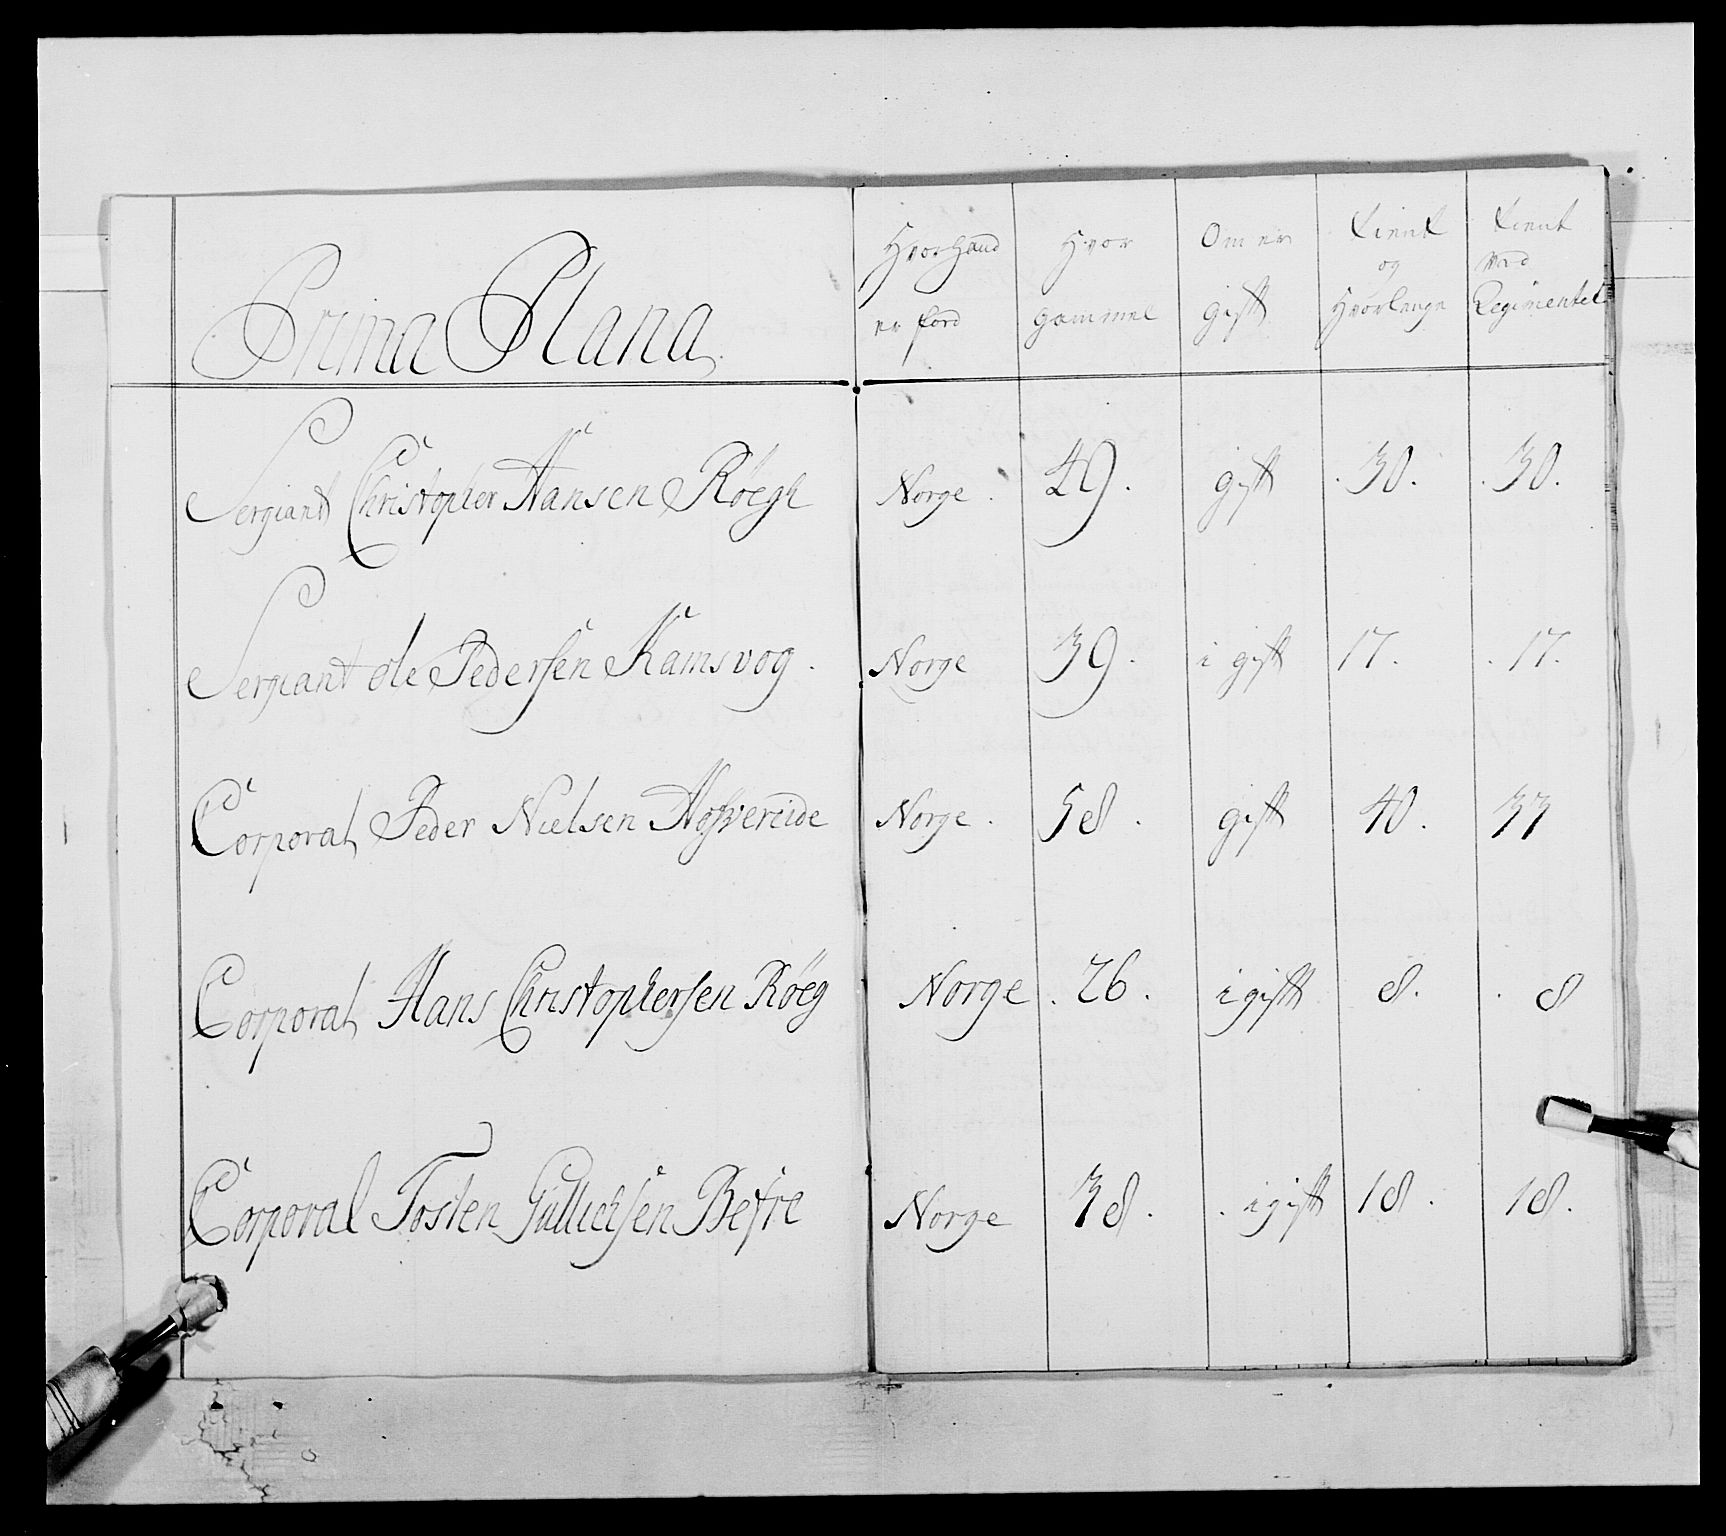 Prima Plana
Hvor hand er förd | Hvor gammel | Om er gift | tient og Hvorlenge | tient ved Regimentet
Sergiant Christopher Hansen Röegh | Norge. | 49. | gift | 30. | 30.
Sergiant Ole Pedersen Ramsvog. | Norge | 39. | i gift | 17. | 17.
Corporal Peder Nielsen | Norge. | 58. | gift | 40. | 33
Corporal Hans Christophersen Röeg | Norge | 26. | i gift | 8. | 8
Corporal Tosten Gullichsen | Norge | 38. | i gift | 18. | 18.